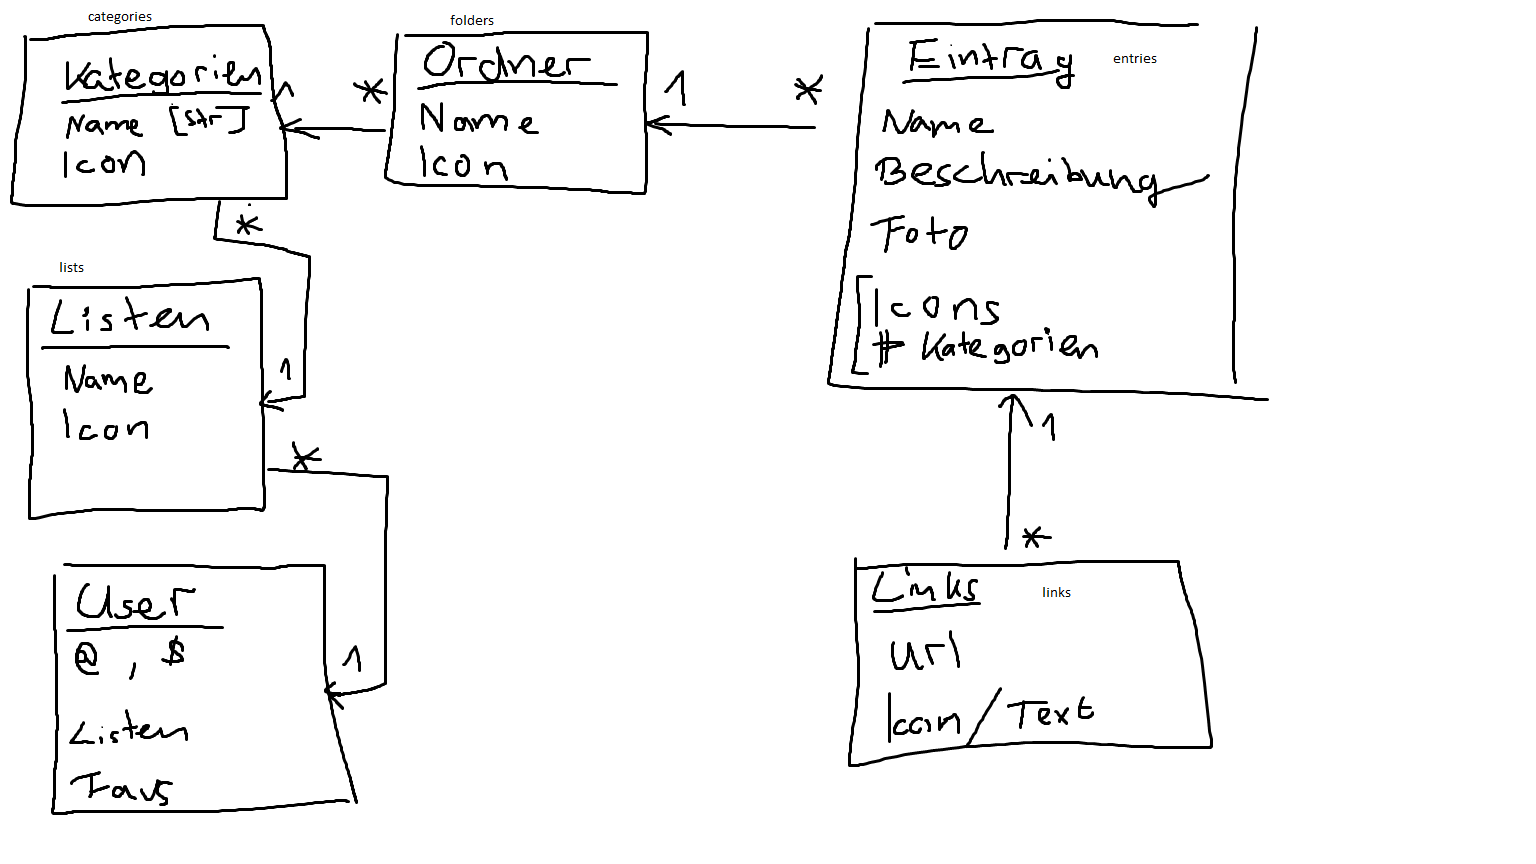 categories
Kategorien
Name [Str]
Icon
1
*
folders
Ordner
Name
Icon
1
*
Eintrag
entries
Name
Beschreibung
Foto
Icons
# Kategorien
*
lists
Listen
Name
Icon
1
*
User
@ , $
Listen
Favs
1
1
*
Links
links
Url
Icon/Text